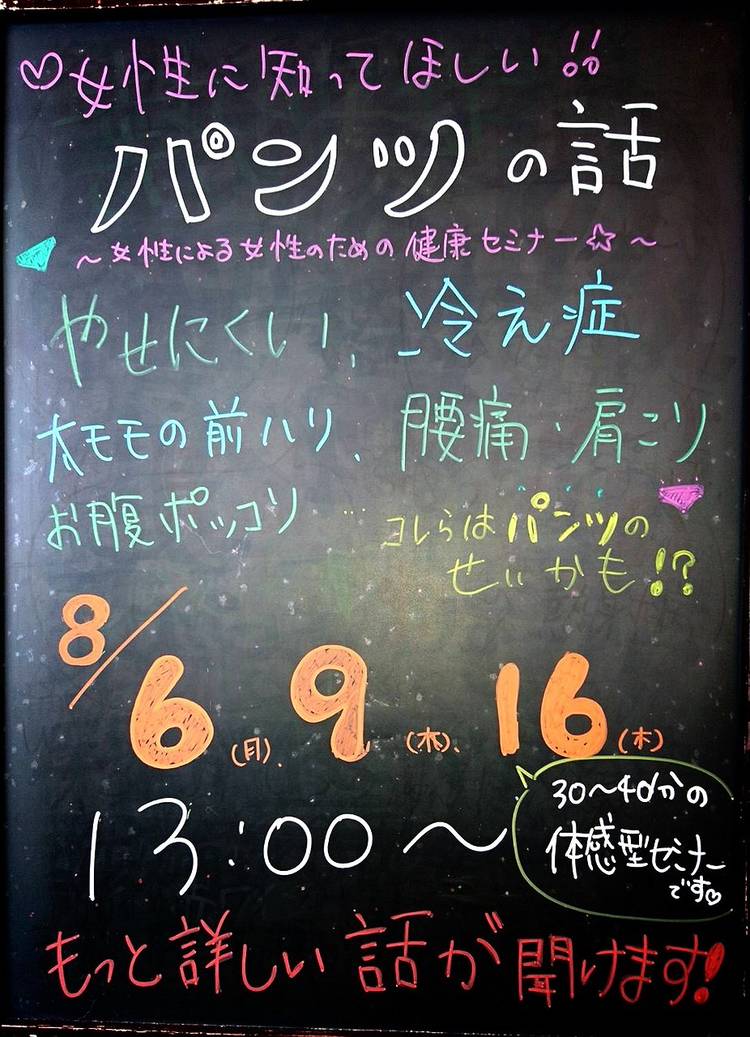 ♡女性に知ってほしい!!
パンツの話
～女性による女性のための健康セミナー☆～
やせにくい、冷え症
太モモの前ハリ、腰痛・肩こり
お腹ポッコリ
…コレらはパンツの
せいかも!?
8/6(月)、9(木)、16(木)
13:00～
30～40分の
体感型セミナー
です♡
もっと詳しい話が聞けます!